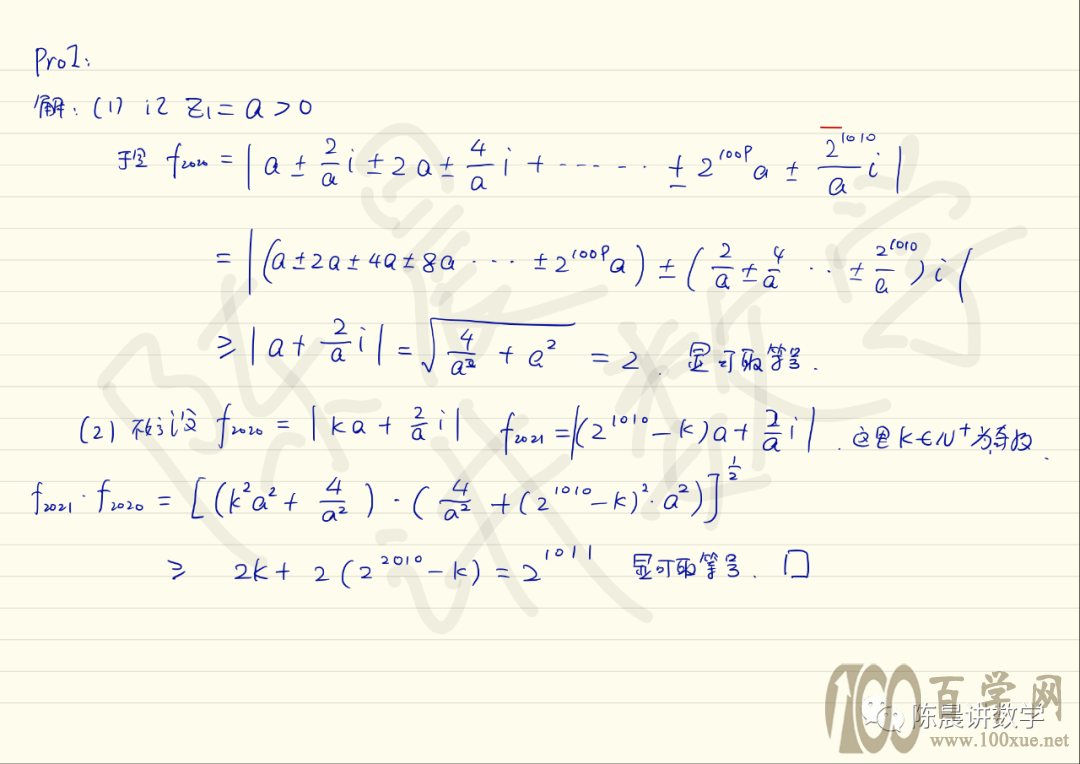 Pro2:
解: (1) 记 Z₁ = a > 0
于是 f₂₀₂₀ = | a ± 2/a i ± 2a ± 4/a i + ······ ± 2¹⁰⁰⁹ a ± 2¹⁰¹⁰/a i |
= | (a ± 2a ± 4a ± 8a ··· ± 2¹⁰⁰⁹ a) ± (2/a ± 4/a ·· ± 2¹⁰¹⁰/a) i |
≥ | a + 2/a i | = √(4/a² + a²) = 2 . 显可取等号.
(2) 不妨设 f₂₀₂₀ = | ka + 2/a i | f₂₀₂₁ = | (2¹⁰¹⁰ - k)a + 2/a i | . 这里 k ∈ N⁺ 为奇数.
f₂₀₂₁ · f₂₀₂₀ = [ (k²a² + 4/a²) · (4/a² + (2¹⁰¹⁰ - k)² · a²) ]^½
≥ 2k + 2(2²⁰¹⁰ - k) = 2¹⁰¹¹ 显可取等号. □
陈晨讲数学
100 百学网
陈晨讲数学
www.100xue.net